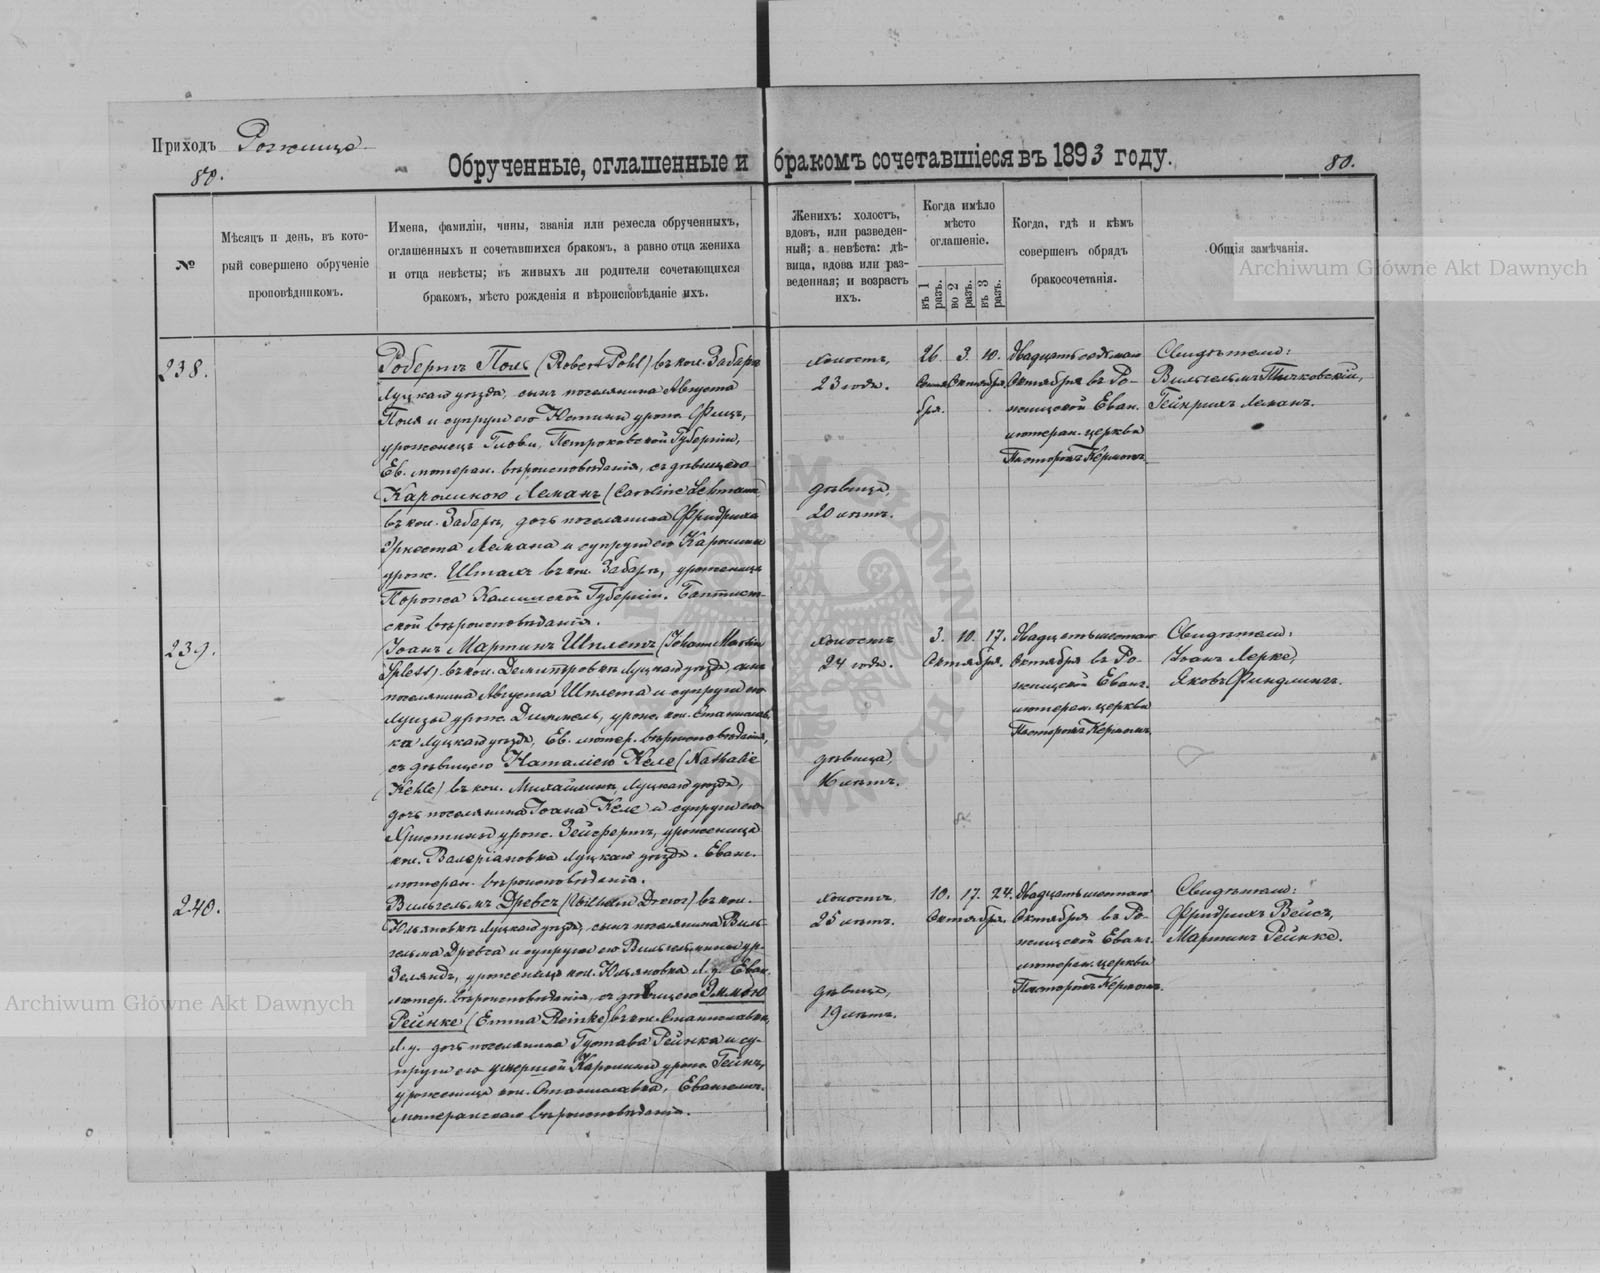 Приходъ Рожище
80.
Обрученные, оглашенные и бракомъ сочетавшіеся въ 1893 году.
80.
№
Мѣсяцъ и день, въ кото-
рый совершено обрученіе
проповѣдникомъ.
Имена, фамиліи, чины, званія или ремесла обрученныхъ,
оглашенныхъ и сочетавшихся бракомъ, а равно отца жениха
и отца невѣсты; въ живыхъ ли родители сочетающихся
бракомъ, мѣсто рожденія и вѣроисповѣданіе ихъ.
Женихъ: холостъ,
вдовъ, или разведен-
ный; а невѣста: дѣ-
вица, вдова или раз-
веденная; и возрастъ
ихъ.
Когда имѣло
мѣсто
оглашеніе.
въ 1 разъ.
во 2 разъ.
въ 3 разъ.
Когда, гдѣ и кѣмъ
совершенъ обрядъ
бракосочетанія.
Общія замѣчанія.
Archiwum Główne Akt Dawnych
238.
Робертъ Поль (Robert Pohl) въ кол. Забара
Луцкаго уѣзда, сынъ поселянина Августа
Поля и супруги его Юстины урожд.
уроженецъ Петроковской Губерніи,
Ев. лютеран. вѣроисповѣданія, съ дѣвицею
Каролиною Леманъ (Caroline Lehmann)
въ кол. Забара, дочь поселянина Фридриха
Эрнеста Лемана и супруги его Каролины
урож. Шталь въ кол. Забара, уроженица
Калишской Губерніи. Баптист-
ской вѣроисповѣданія.
холостъ,
23 года.
дѣвица,
20 лѣтъ.
26. 3. 10.
Сентя- Октября.
бря.
Двадцать седьмаго
Октября въ Ро-
жищской Еван.
лютеран. церкви
Пасторомъ Керномъ.
Свидѣтели:
Вильгельмъ Тычковскій,
Гейнрихъ Леманъ.
239.
Іоанъ Мартинъ Шплетъ (Johann Martin
Spletts) въ кол. Демитровка Луцкаго уѣзда, сынъ
поселянина Августа Шплета и супруги его
Луизы урож. Диммель, урож. кол. Станислав-
ка Луцкаго уѣзда, Ев. лютер. вѣроисповѣданія,
съ дѣвицею Наталіею Келе (Nathalie
Kehle) въ кол. Михайлина, Луцкаго уѣзда,
дочь поселянина Іоана Келе и супруги его
Христины урож. Зейфертъ, уроженица
кол. Валеріановка Луцкаго уѣзда. Еванг.
лютеран. вѣроисповѣданія.
холостъ
24 года.
дѣвица,
16 лѣтъ.
3. 10. 17.
Октября.
Двадцать шестаго
Октября въ Ро-
жищской Еванг.
лютеран. церкви
Пасторомъ Керномъ.
Свидѣтели:
Іоанъ Лерке,
Яковъ Финдлингъ.
240.
Вильгельмъ Древсъ (Wilhelm Drews) въ кол.
Юльяновка Луцкаго уѣзда, сынъ поселянина Виль-
гельма Древса и супруги его Вильгельмины ур.
Зеландъ, уроженецъ кол. Юльяновка Л. у. Еван.
лютер. вѣроисповѣданія, съ дѣвицею Эммою
Рейнке (Emma Reinke) въ кол. Станиславка,
Л. у. дочь поселянина Густава Рейнка и су-
пруги его умершей Каролины урож. Гейнъ,
уроженица кол. Станиславка, Евангел.
лютеранскаго вѣроисповѣданія.
холостъ,
25 лѣтъ.
дѣвица,
19 лѣтъ.
10. 17. 24.
Октября.
Двадцать шестаго
Октября въ Ро-
жищской Еванг.
лютеран. церкви
Пасторомъ Керномъ.
Свидѣтели:
Фридрихъ Вейсъ,
Мартинъ Рейнке.
Archiwum Główne Akt Dawnych